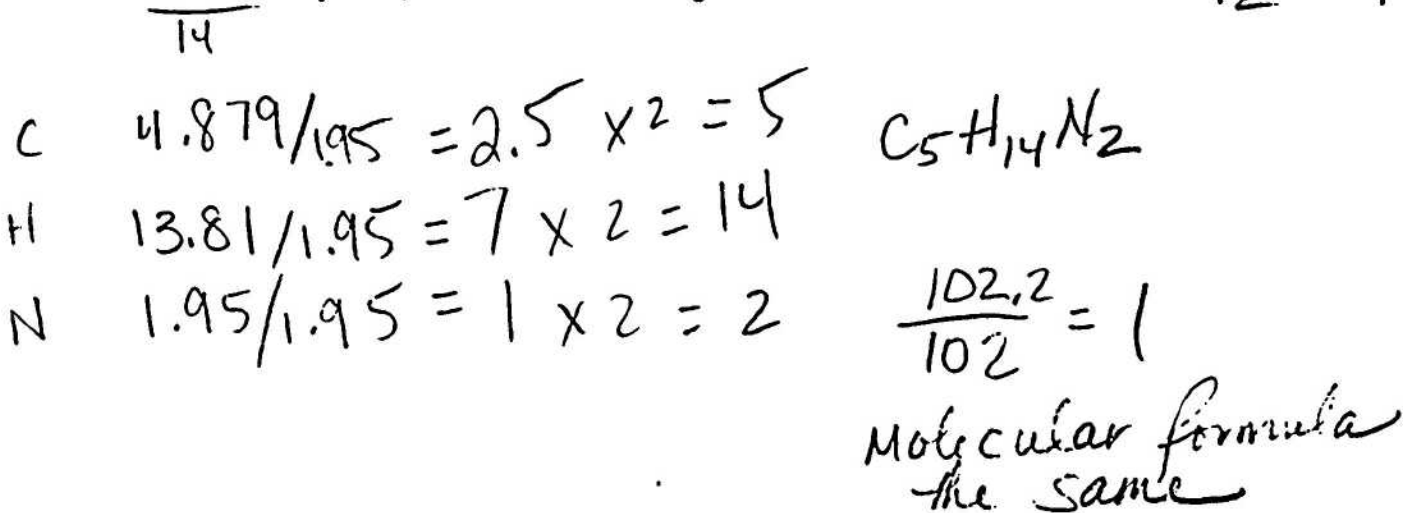 14
C 4.879/1.95 = 2.5 x 2 = 5 C5H14N2
H 13.81/1.95 = 7 x 2 = 14
N 1.95/1.95 = 1 x 2 = 2
102.2/102 = 1
Molecular formula
the same